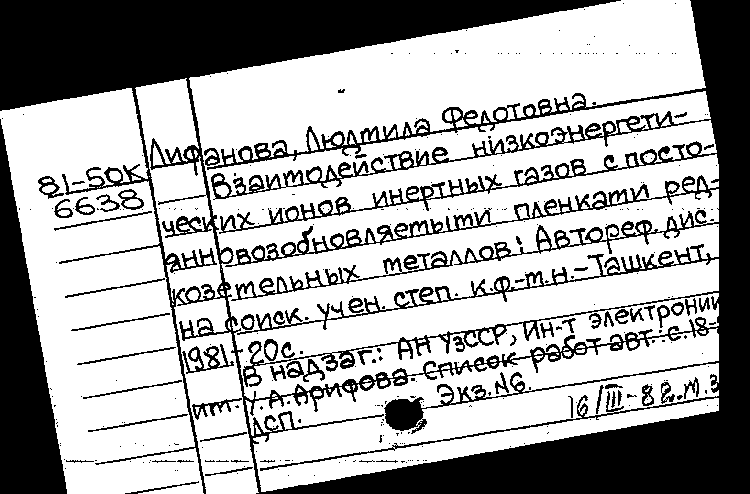 Лифанова, Людмила Федотовна.
81-50К
6638
Взаимодействие низкоэнергети-
ческих ионов инертных газов с посто-
янновозобновляемыми пленками ред-
коземельных металлов: Автореф. дис.
на соиск. учен. степ. к.ф.-м.н.-Ташкент,
1981.-20с.
В надзаг.: АН УзССР, Ин-т электроники
им. У.А.Арифова. Список работ авт.: с.18-
ДСП. Экз.№6.
16/III-82.М.З